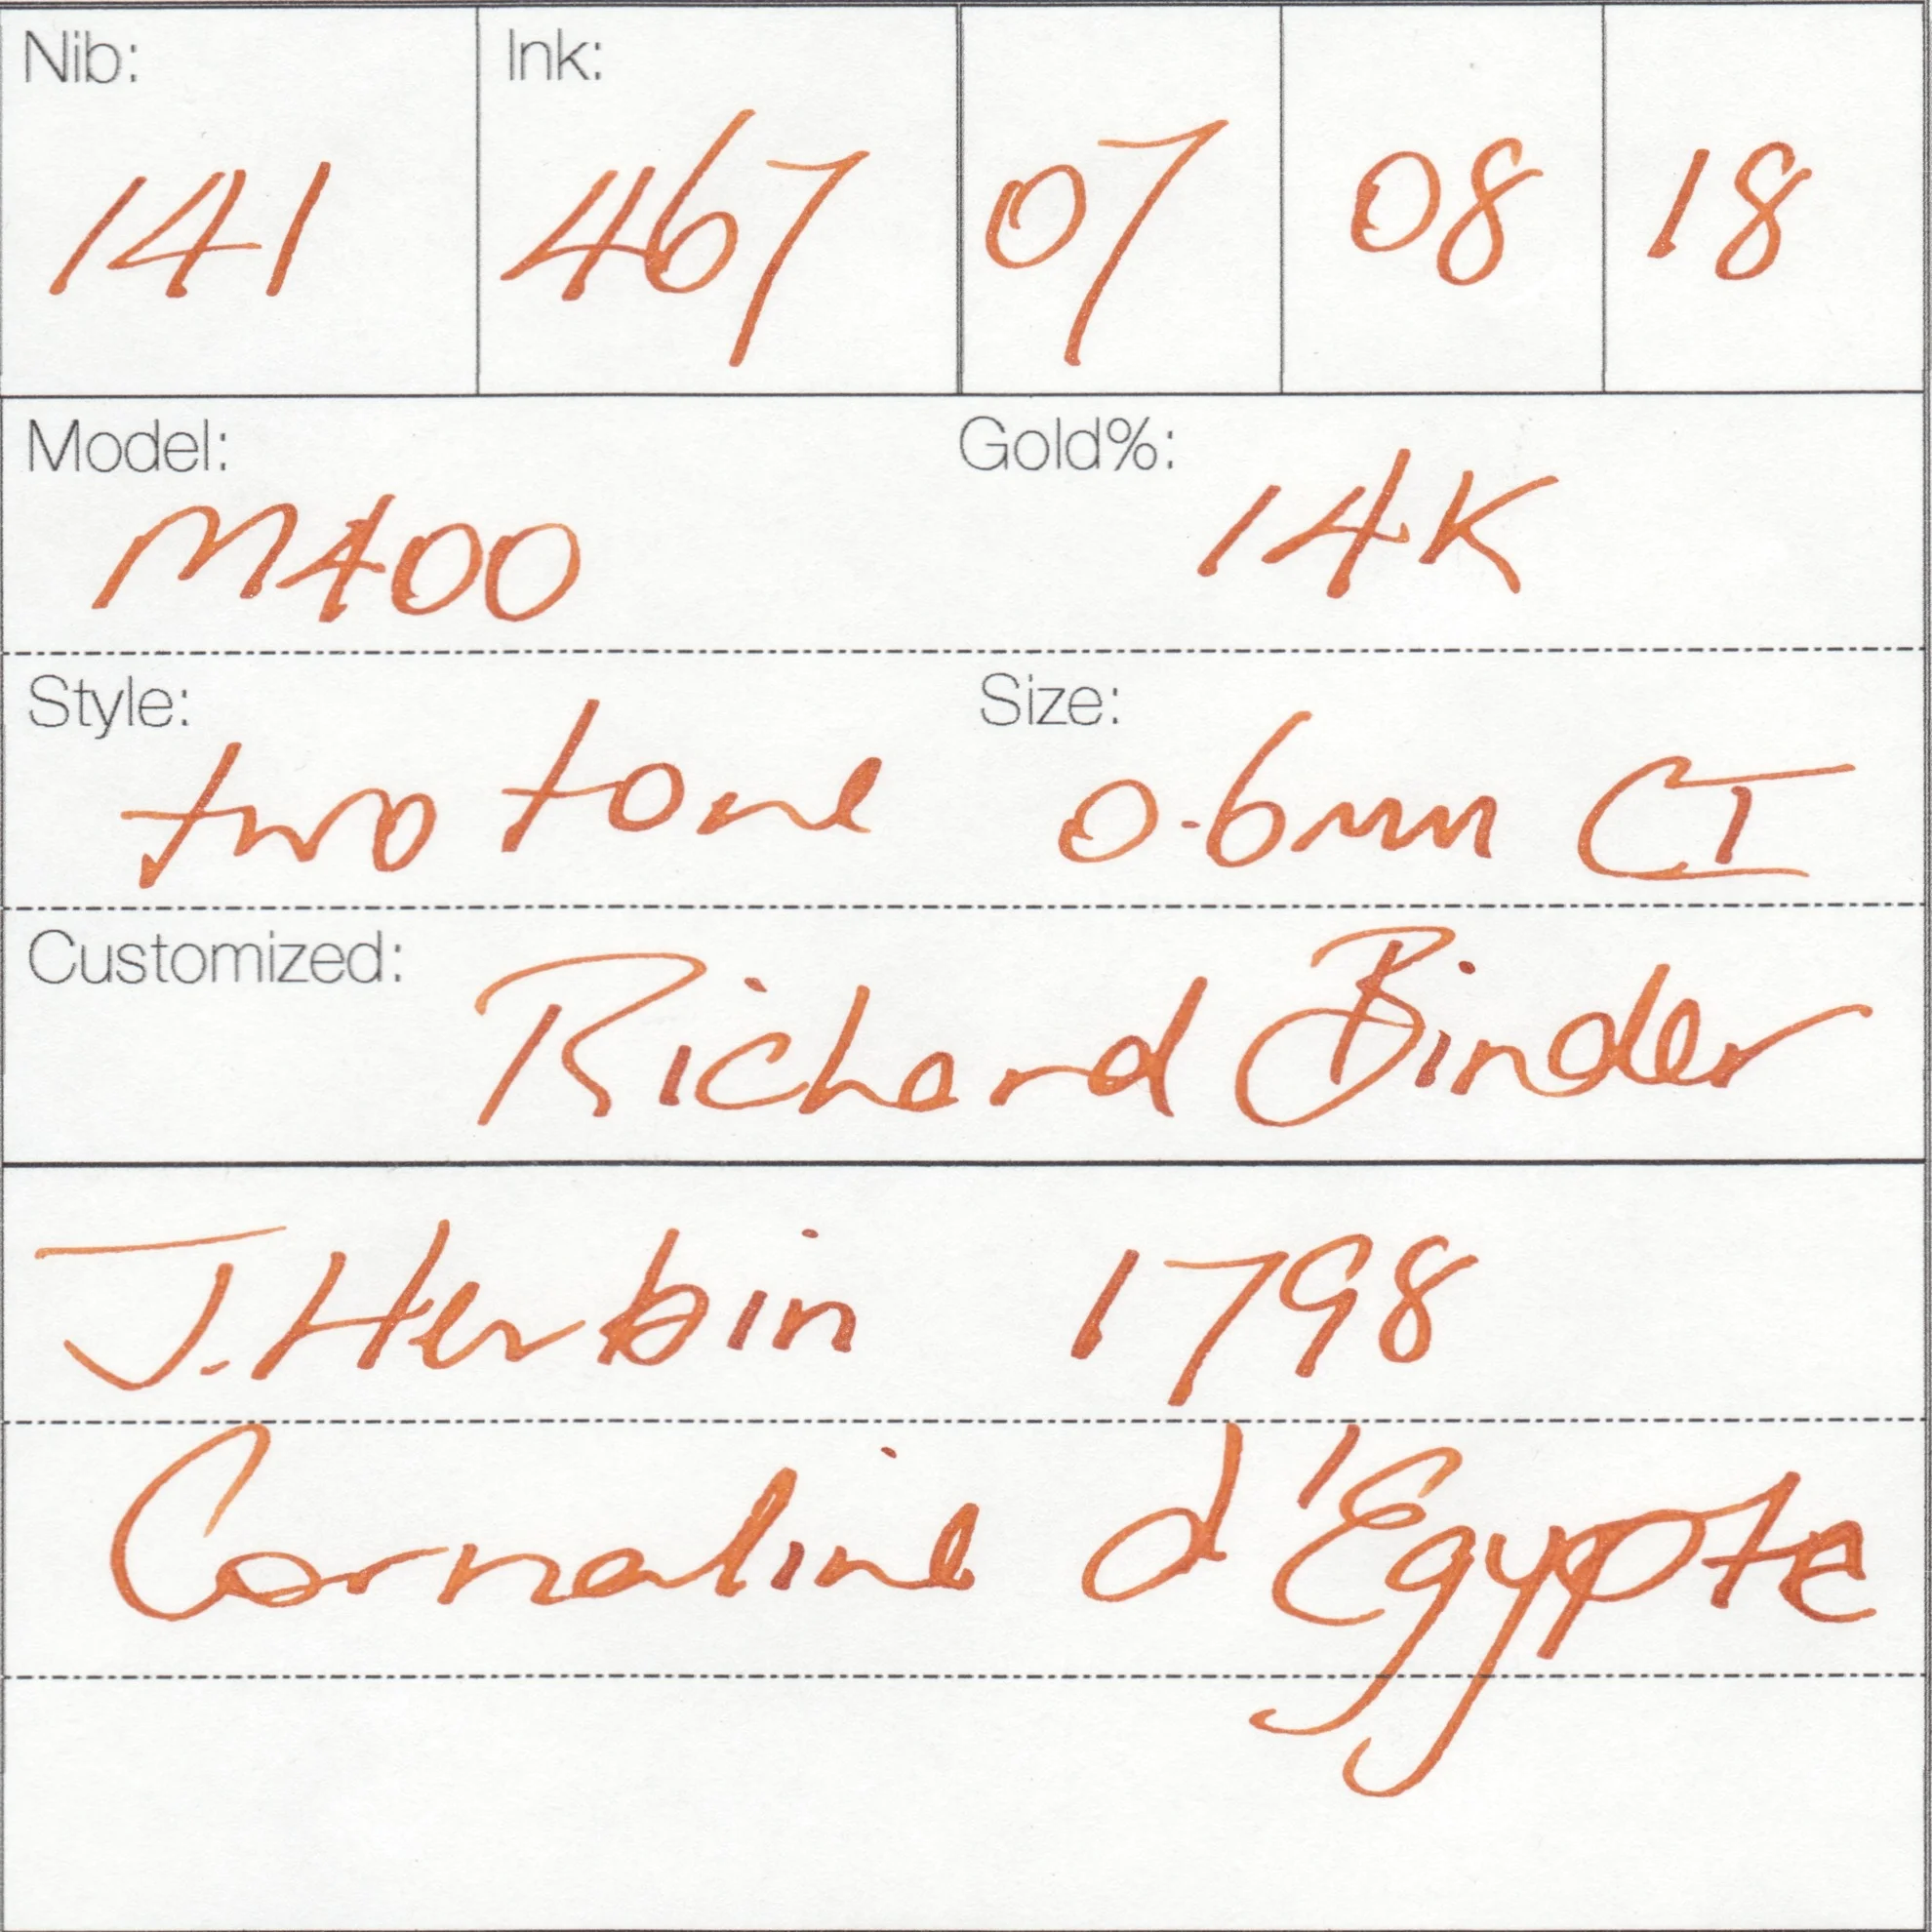 Nib: Ink:
141 467 07 08 18
Model: Gold%:
M400 14K
Style: Size:
two tone 0.6mm CI
Customized:
Richard Binder
J. Herbin 1798
Cornaline d'Egypte